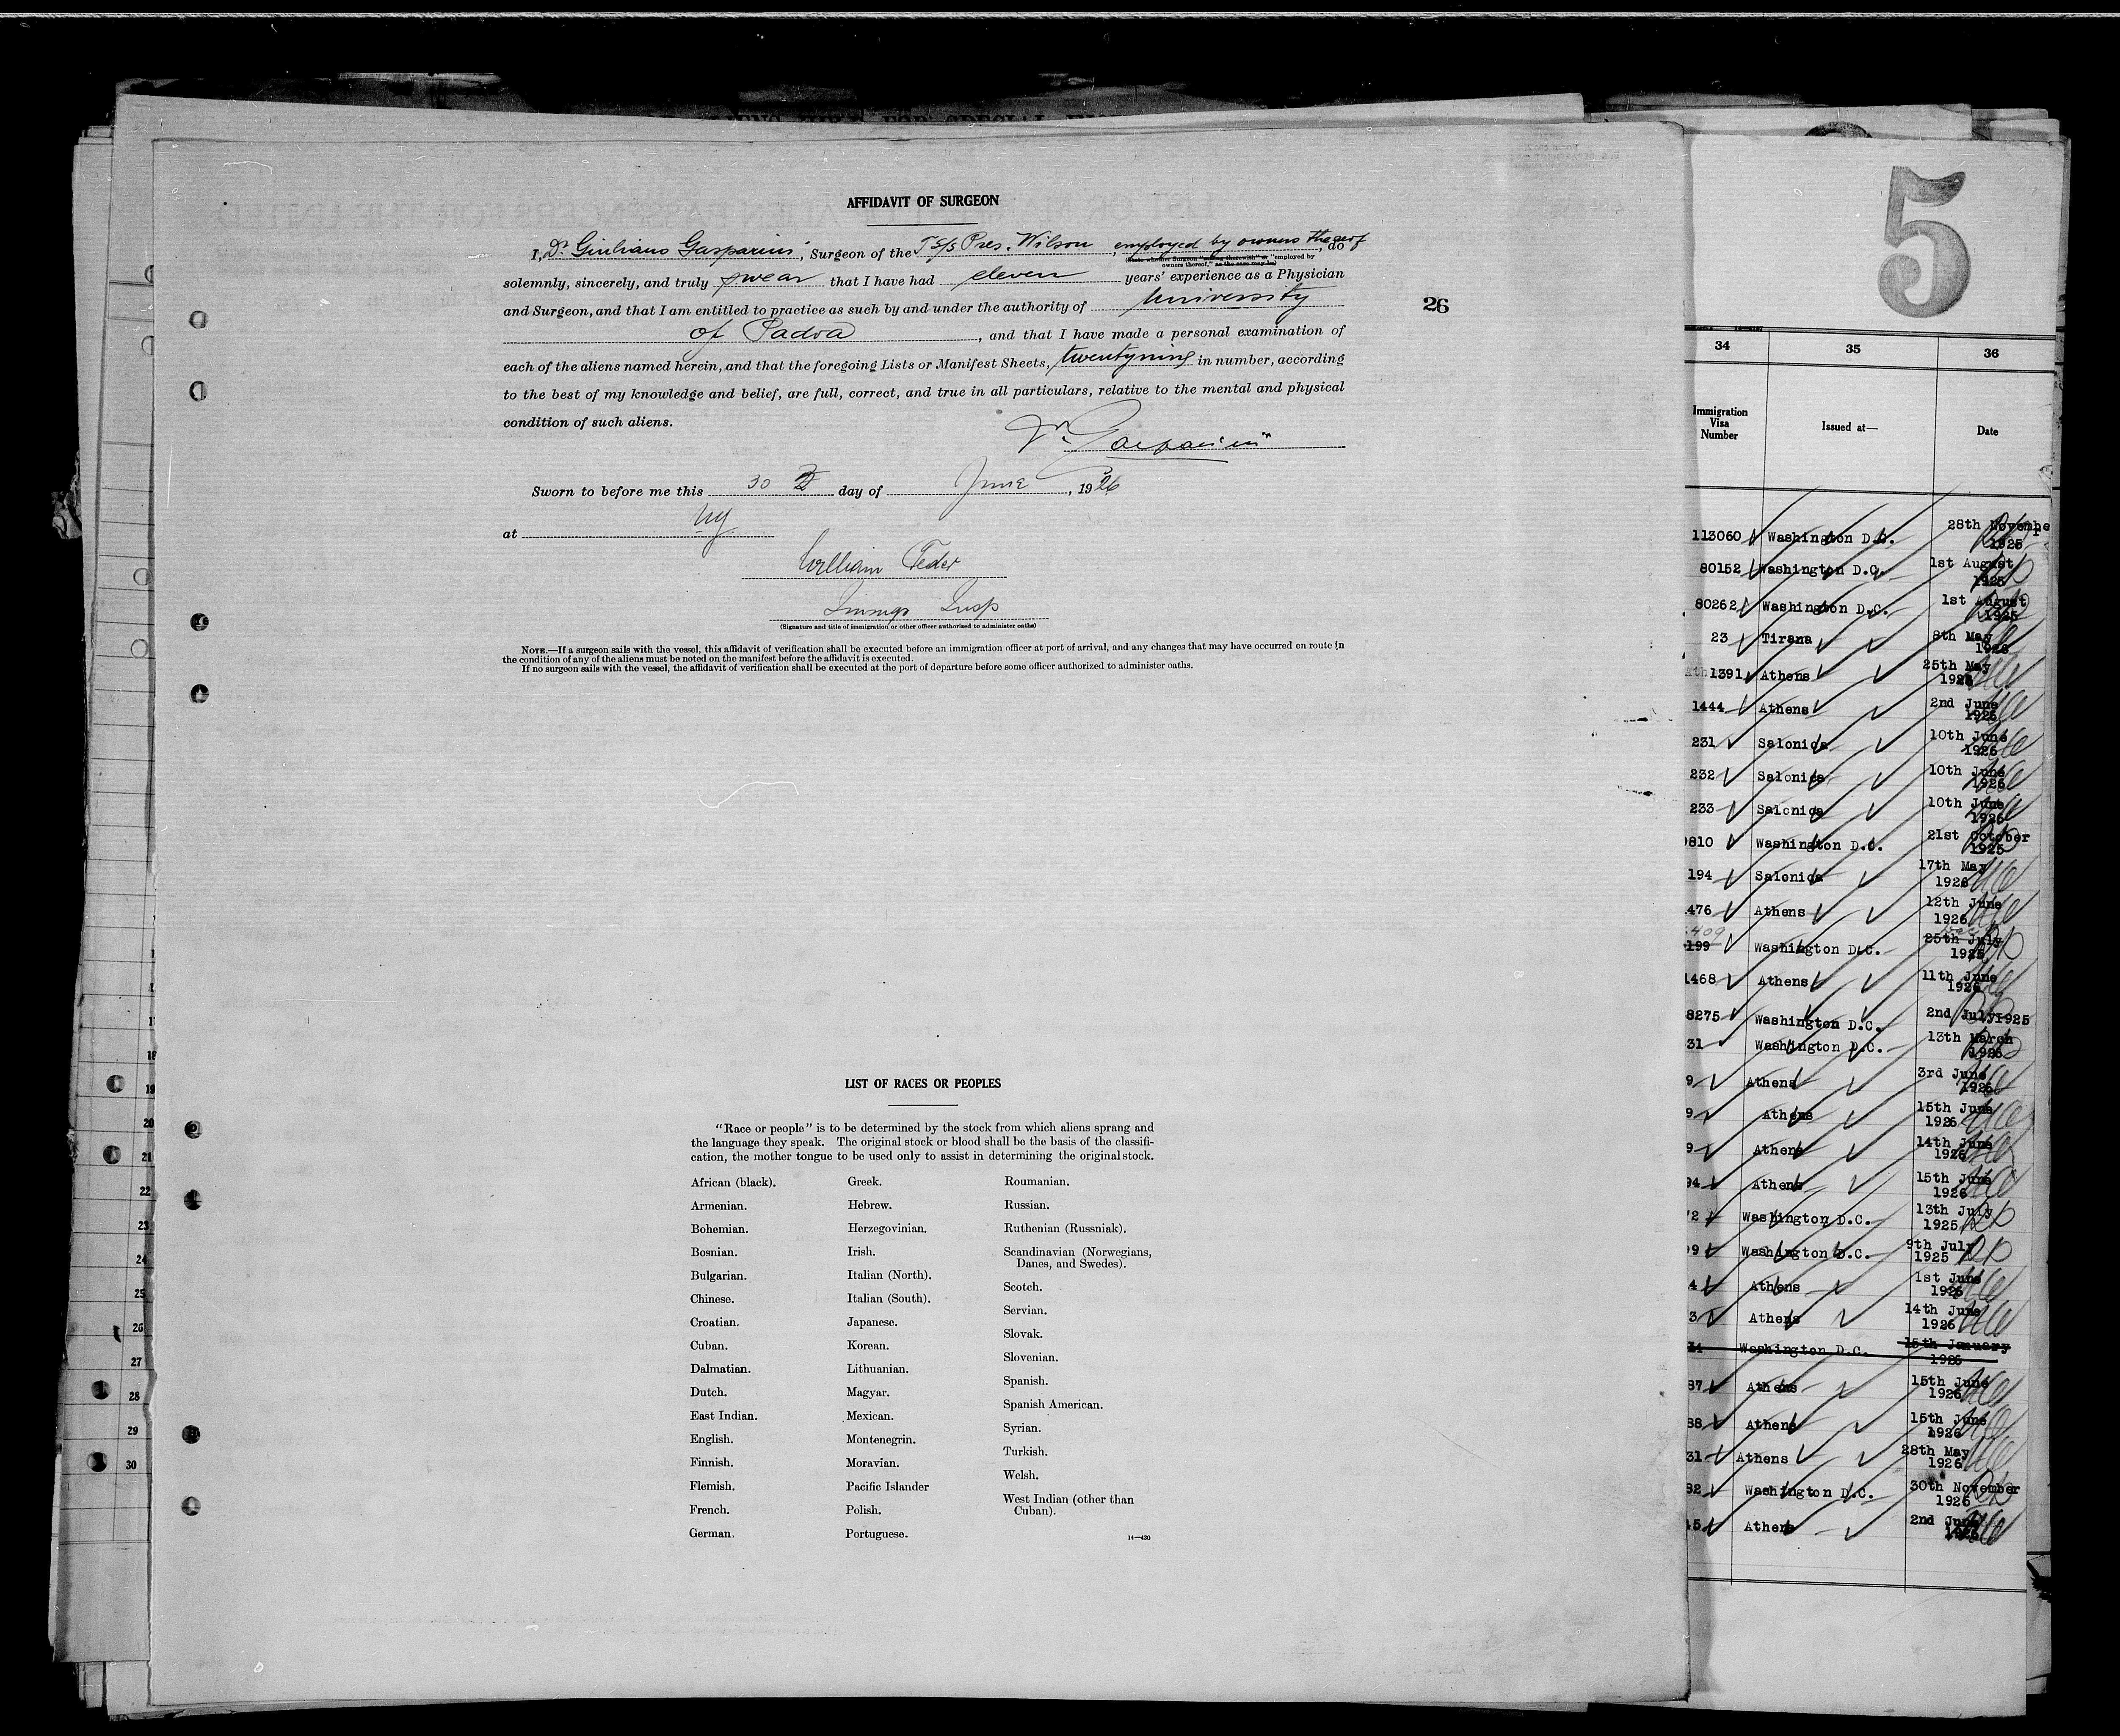 AFFIDAVIT OF SURGEON
I, Dr Giuliano Gasparini, Surgeon of the T S/S Pres. Wilson, employed by owners thereof, do
(State whether Surgeon "sailing therewith" or "employed by
owners thereof," as the case may be)
solemnly, sincerely, and truly swear that I have had eleven years' experience as a Physician
and Surgeon, and that I am entitled to practice as such by and under the authority of University
of Padva, and that I have made a personal examination of
each of the aliens named herein, and that the foregoing Lists or Manifest Sheets, twentynine in number, according
to the best of my knowledge and belief, are full, correct, and true in all particulars, relative to the mental and physical
condition of such aliens.
Dr. Gasparini
Sworn to before me this 30 day of June, 1926
at NY
William Feder
Immigr Insp
(Signature and title of immigration or other officer authorized to administer oaths)
NOTE.—If a surgeon sails with the vessel, this affidavit of verification shall be executed before an immigration officer at port of arrival, and any changes that may have occurred en route in
the condition of any of the aliens must be noted on the manifest before the affidavit is executed.
If no surgeon sails with the vessel, the affidavit of verification shall be executed at the port of departure before some officer authorized to administer oaths.
26
LIST OF RACES OR PEOPLES
"Race or people" is to be determined by the stock from which aliens sprang and
the language they speak. The original stock or blood shall be the basis of the classifi-
cation, the mother tongue to be used only to assist in determining the original stock.
African (black).
Armenian.
Bohemian.
Bosnian.
Bulgarian.
Chinese.
Croatian.
Cuban.
Dalmatian.
Dutch.
East Indian.
English.
Finnish.
Flemish.
French.
German.
Greek.
Hebrew.
Herzegovinian.
Irish.
Italian (North).
Italian (South).
Japanese.
Korean.
Lithuanian.
Magyar.
Mexican.
Montenegrin.
Moravian.
Pacific Islander
Polish.
Portuguese.
Roumanian.
Russian.
Ruthenian (Russniak).
Scandinavian (Norwegians,
Danes, and Swedes).
Scotch.
Servian.
Slovak.
Slovenian.
Spanish.
Spanish American.
Syrian.
Turkish.
Welsh.
West Indian (other than
Cuban).
14—430
5
34 35 36
Immigration
Visa
Number
Issued at—
Date
113060 Washington D.C. 28th Novembe
1925
80152 Washington D.C. 1st August
1925
80262 Washington D.C. 1st August
1925
23 Tirana 8th May
1926
1391 Athens 25th May
1926
1444 Athens 2nd June
1926
231 Salonica 10th June
1926
232 Salonica 10th June
1926
233 Salonica 10th June
1926
0810 Washington D.C. 21st October
1925
194 Salonica 17th May
1926
476 Athens 12th June
1926
409
199 Washington D.C. 25th July
1925
1468 Athens 11th June
1926
8275 Washington D.C. 2nd July 1925
31 Washington D.C. 13th March
1926
9 Athens 3rd June
1926
9 Athens 15th June
1926
9 Athens 14th June
1926
94 Athens 15th June
1926
72 Washington D.C. 13th July
1925
99 Washington D.C. 9th July
1925
4 Athens 1st June
1926
3 Athens 14th June
1926
Washington D.C. 15th January
1926
87 Athens 15th June
1926
88 Athens 15th June
1926
31 Athens 28th May
1926
82 Washington D.C. 30th November
1926
45 Athens 2nd June
1926
18
19
20
21
22
23
24
25
26
27
28
29
30